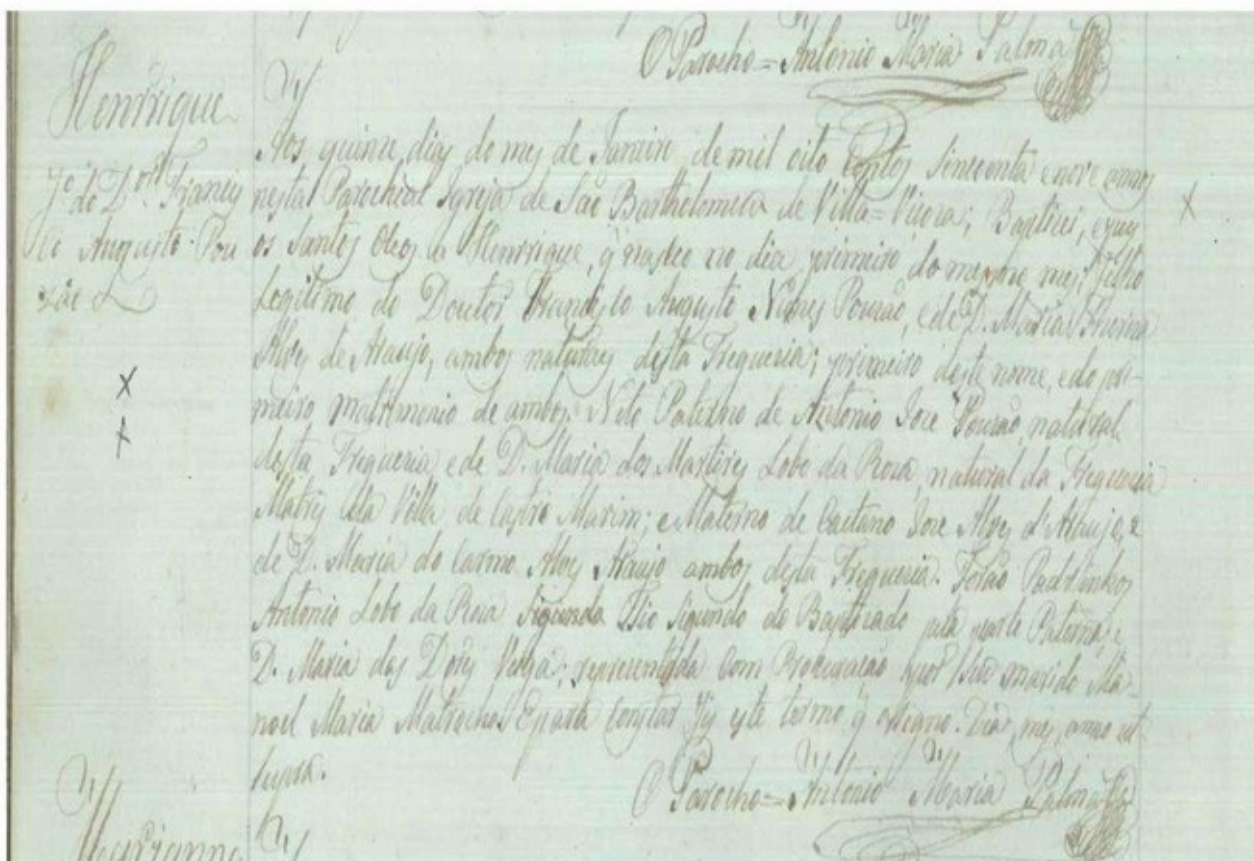 O Parocho = Antonio Maria Palma
Henrrique
fº. do Dor. Francis
co Augusto Pou
zão
Aos quinze dias do mes de Janeiro de mil oito centos sincoenta e nove annos
nesta Parochial Igreja de São Bartholomeu de Villa=Viçoza; Baptizei, e puz
os Santos Oleos a Henrrique, q̃ nasceo no dia primeiro do mesmo mez: Filho
Legitimo do Doutor Francisco Augusto Nunes Pouzão, e de D. Maria Thereza
Alves de Araujo, ambos naturaes desta Freguezia; primeiro deste nome, e do pri-
meiro matrimonio de ambos: Neto Paterno de Antonio Joze Pouzão, natural
desta Freguezia, e de D. Maria dos Martires Lobo da Roza, natural da Freguezia
Matriz da Villa de Castro Marim; e Materno de Caetano Joze Alves d'Araujo, e
de D. Maria do Carmo Alves Araujo ambos desta Freguezia. Forão Padrinhos
Antonio Lobo da Roza Tio segundo do Baptizado pela parte Paterna, e
D. Maria das Dores; reprezentada com Procuração por seu marido Ma-
noel Maria E para constar fiz este termo q̃ assigno. Dia, mez, anno ut
supra.
O Parocho = Antonio Maria Palma
Marianna